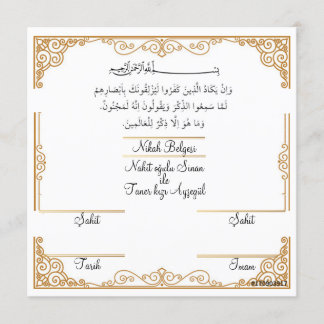 بِسْمِ اللهِ الرَّحْمٰنِ الرَّحِيمِ
وَإِنْ يَكَادُ الَّذِينَ كَفَرُوا لَيُزْلِقُونَكَ بِأَبْصَارِهِمْ
لَمَّا سَمِعُوا الذِّكْرَ وَيَقُولُونَ إِنَّهُ لَمَجْنُونٌ.
وَمَا هُوَ إِلَّا ذِكْرٌ لِلْعَالَمِينَ.
Nikah Belgesi
Nahit oğulu Sinan
ile
Taner kızı Ayşegül
Şahit Şahit
Tarih Imam